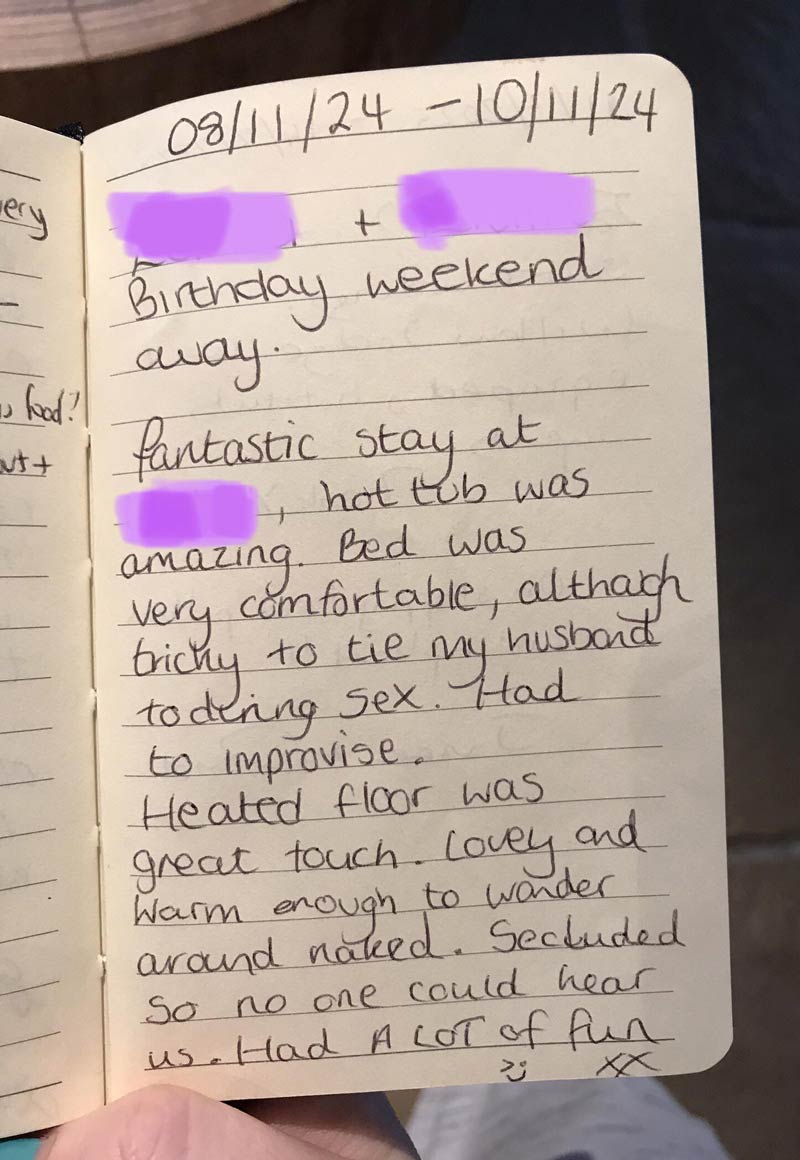 08/11/24 - 10/11/24
+
Birthday weekend
away.
fantastic stay at
, hot tub was
amazing. Bed was
very comfortable, although
tricky to tie my husband
to dering sex. Had
to improvise.
Heated floor was
great touch. Lovey and
warm enough to wander
around naked. Secluded
so no one could hear
us. Had A LOT of fun
:) xx
ery
food?